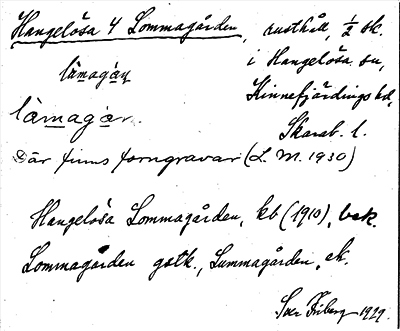 Hangelösa 4 Lommagården, rusthåll, 1/2 sk.
i Hangelösa sn,
Kinnefjärdings hd,
Skarab. l.
låmagån
låmagår.
Där finns forngravar (L. M. 1930)
Hangelösa Lommagården, kb (1910), bek.
Lommagården gstk., Lummagården, ek.
Friberg 1929